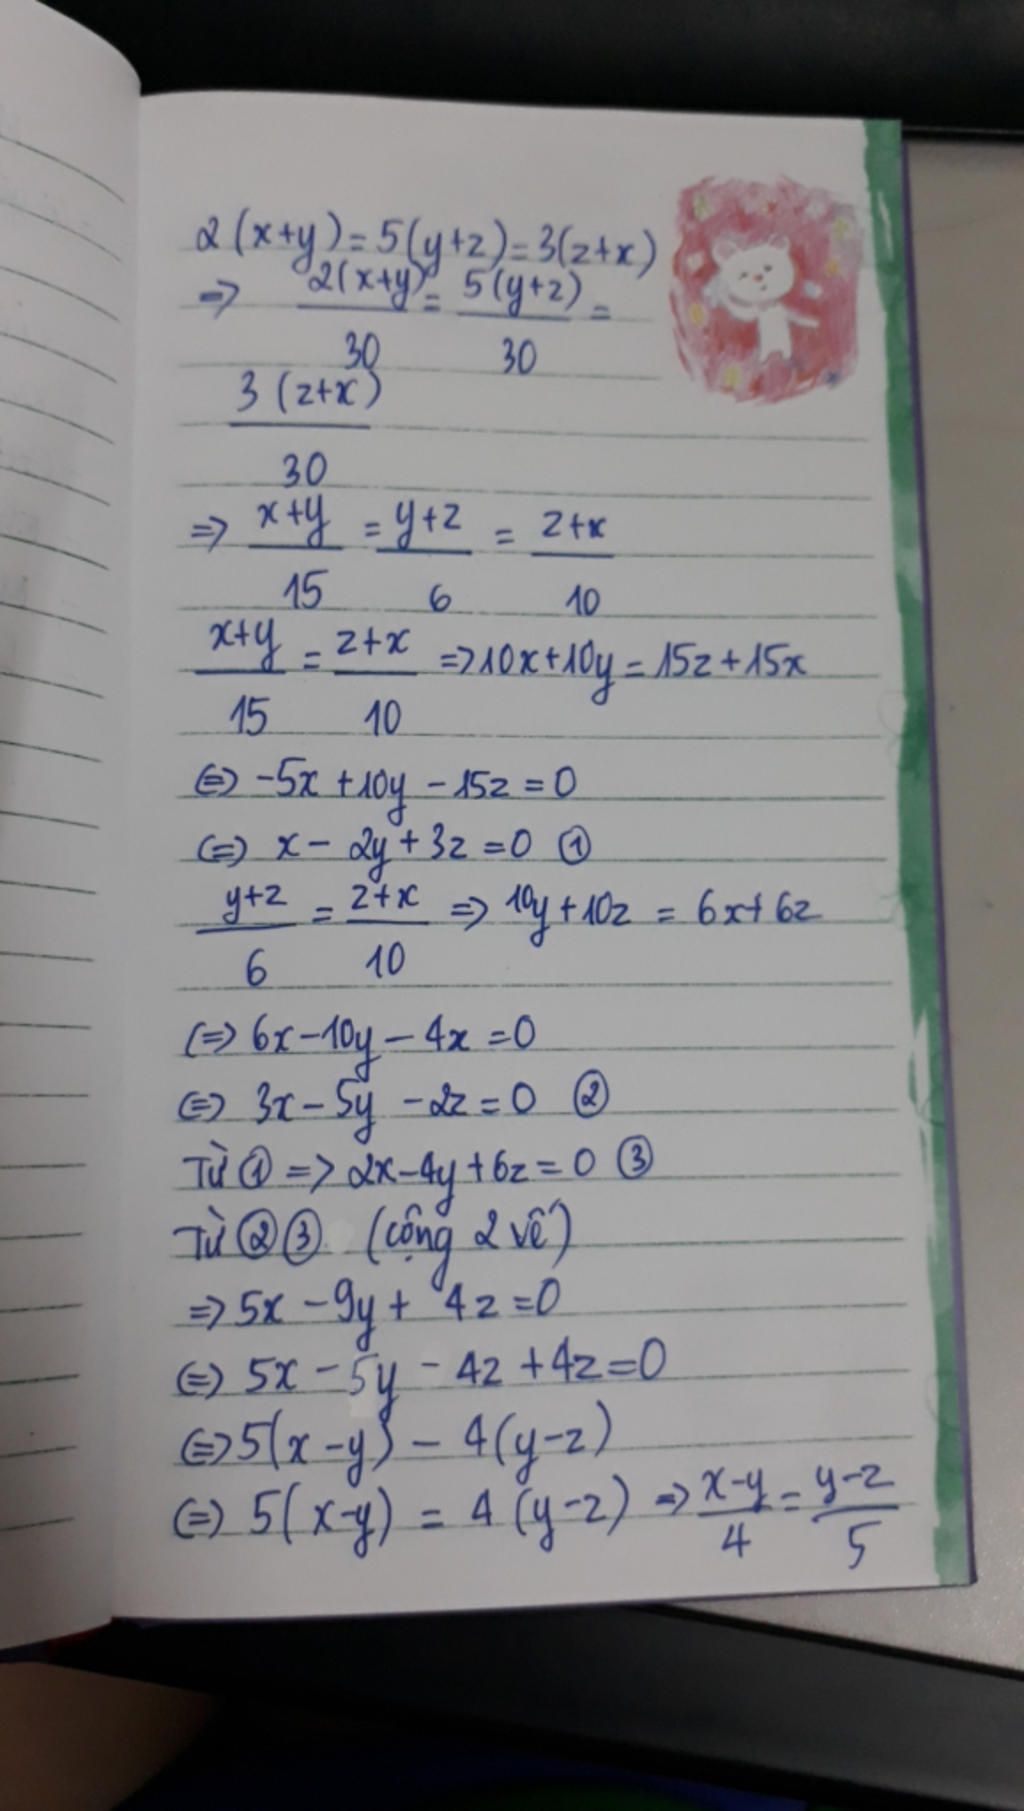 2(x+y)=5(y+z)=3(z+x)
=> 2(x+y)/30 = 5(y+z)/30 =
3(z+x)/30
=> x+y/15 = y+z/6 = z+x/10
x+y/15 = z+x/10 => 10x+10y=15z+15x
(=) -5x+10y-15z=0
(=) x-2y+3z=0 ①
y+z/6 = z+x/10 => 10y+10z = 6x+6z
(=) 6x-10y-4x=0
(=) 3x-5y-2z=0 ②
Từ ① => 2x-4y+6z=0 ③
Từ ②③ (cộng 2 vế)
=> 5x-9y+4z=0
(=) 5x-5y-4z+4z=0
(=) 5(x-y)-4(y-z)
(=) 5(x-y) = 4(y-z) => x-y/4 = y-z/5